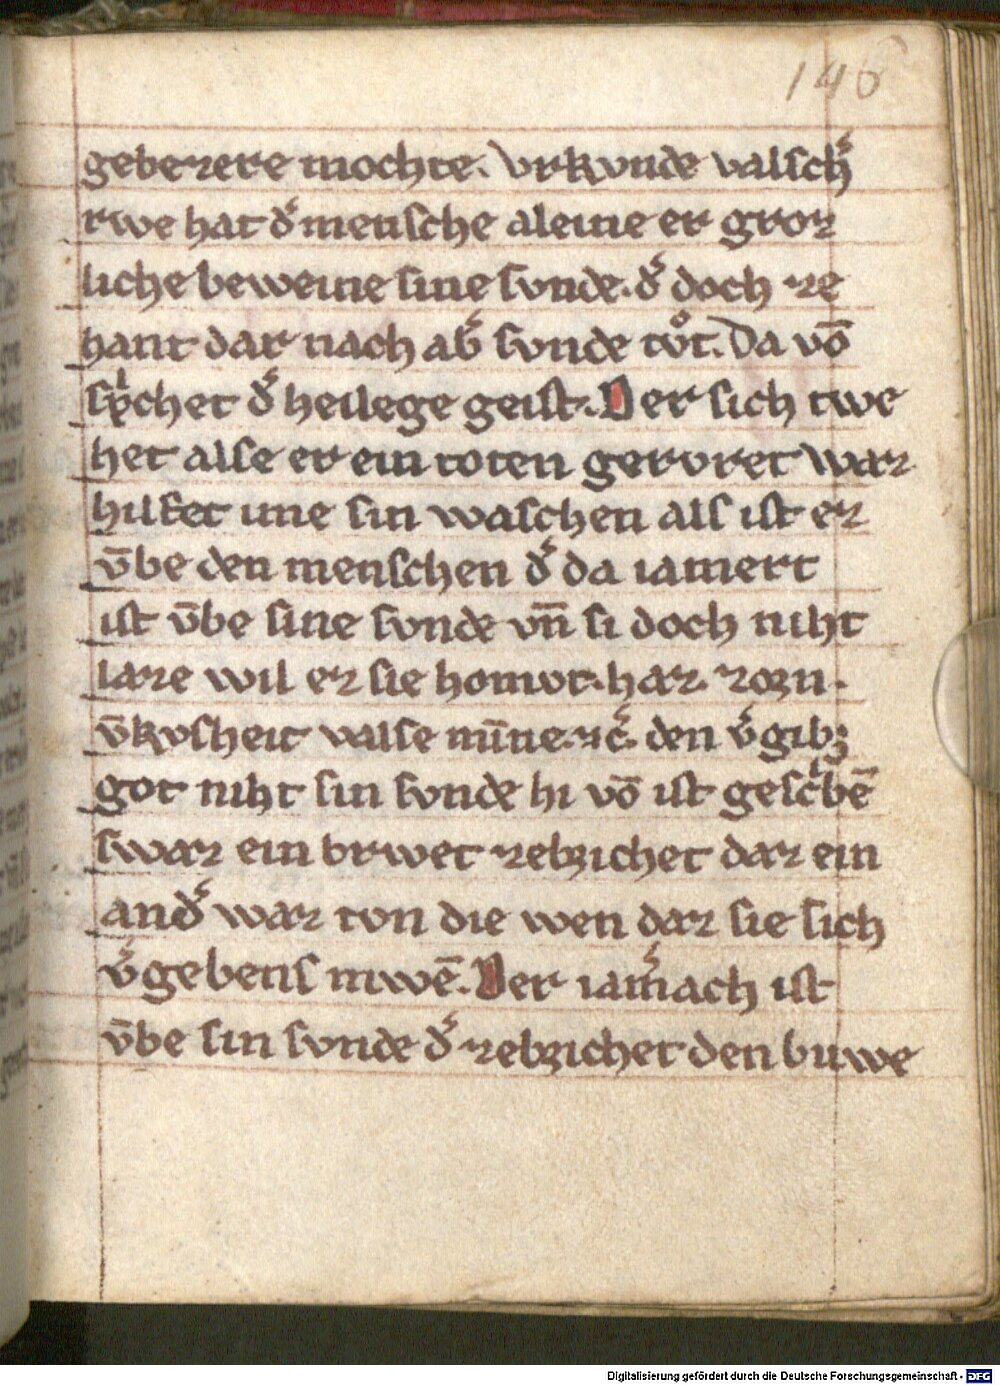 146
gebezere mochte. vrkvnde valsch͛
rwe hat d͛ mensche aleine er groz
liche beweine sine svnde. d͛ doch ze
hant dar nach ab͛ svnde tvͦt. Da vō
sp͛chet d͛ heilege geist. Der sich twe
het alse er ein toten gervret waz
hilfet ime sin waschen als ist ez
v̄be den menschen d͛ da iamert
ist v̄be sine svnde vn̄ si doch niht
laze wil ez sie homvt. haz. zorn.
v̄kvsheit valse mīne. ⁊c͛. den v͛gibꝫ
got niht sin svnde hi vō ist gesc͛bē
swaz ein brwet zebꝛichet daz ein
and͛ waz ton die wen daz sie sich
v͛gebens mwē. Der iam͛ nach ist
v̄be sin svnde d͛ zebꝛichet den buwe
Digitalisierung gefördert durch die Deutsche Forschungsgemeinschaft - DFG